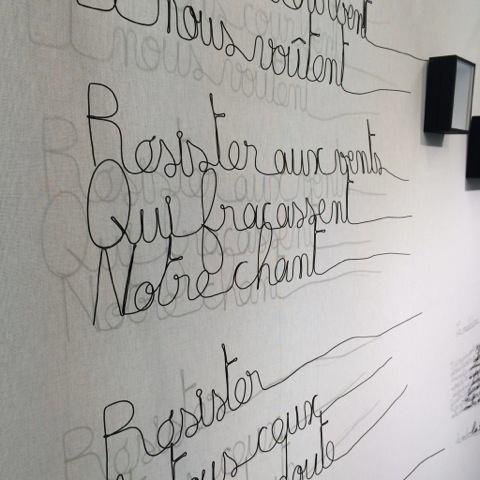 nous voûtent
Resister aux vents
Qui fracassent
Notre chant
Resister
tous ceux
doute